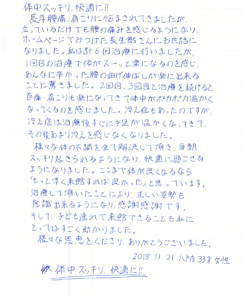 体中スッキリ、快適に!!
長年腰痛、肩こりに悩まされてきましたが、
立っているだけでも腰の痛みを感じるようになり、
ホームページでみつけた長生館さんにお世話に
なりました。私は計6回治療に行いましたが、
1回目の治療で体がスーッと楽になるのを感じ、
あんなに辛かった腰の曲げ伸ばしが楽に出来る
ことに驚きました。2回目、3回目と治療を続けると
首痛・肩こりも楽になってきて体中がポカポカ温かく
なってくるのを感じました。冷え症もあったのですが
今では治療後すぐに手足が温かくなってきて、
その後あまり冷えを感じなくなりました。
様々な体の不調を全て解決して頂き、毎朝
スッキリ起きられるようになり、快適に過ごせる
ようになりました。ここまで体が良くなるなら
もっと早く来館すれば良かったと思っています。
治療して頂いたことにより、正しい姿勢も
意識出来るようになり、感謝感謝です。
そして、子ども連れで来館できることも私に
とってはすごく助かりました。
様々な恩恵をくださり、ありがとうございました。
2018.11.21 八街 33才 女性
体中スッキリ、快適に!!